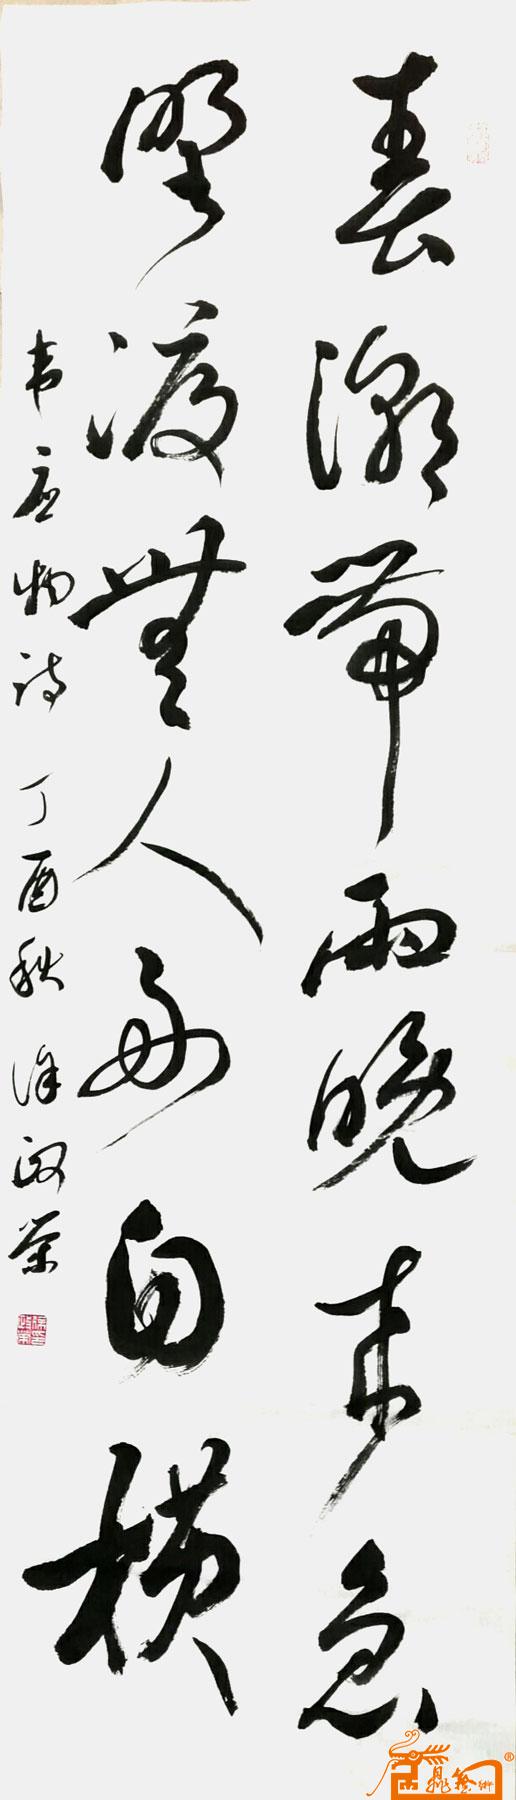 春潮带雨晚来急
野渡無人舟自横
韦应物诗 丁酉秋 徐政荣